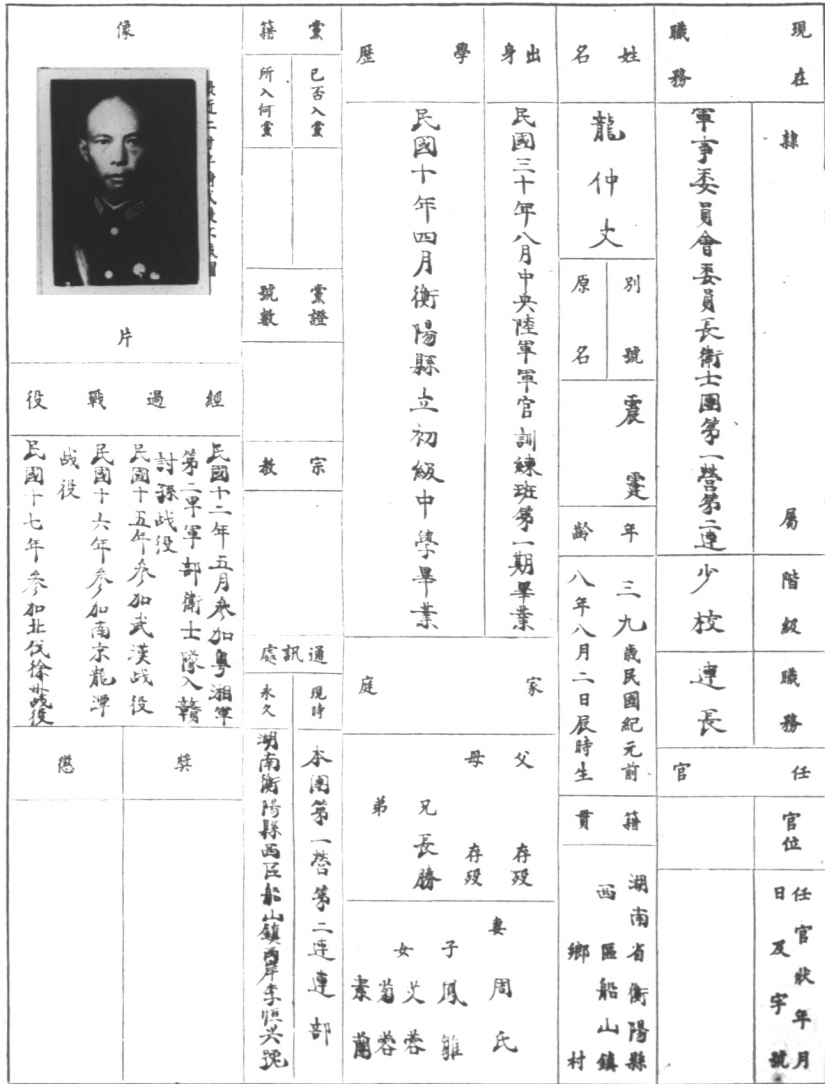 現在職務
隸屬
軍事委員會委員長衛士團第一營第二連
階級
少校
職務
連長
任官
官位
任官狀年月
日及字號
姓名
龍仲文
別號
原名
震霆
年齡
三九歲民國紀元前
八年八月二日辰時生
籍貫
湖南省衡陽縣
西區船山鎮
鄉村
出身
民國三十年八月中央陸軍軍官訓練班第一期畢業
學歷
民國十年四月衡陽縣立初級中學畢業
家庭
父
存歿
母
存歿
兄
長勝
弟
妻
周氏
子
鳳雛
女
艾蓉
菊蓉
素蘭
黨籍
已否入黨
所入何黨
黨證
號數
宗教
通訊處
現時
本團第一營第二連連部
永久
湖南衡陽縣西區船山鎮西岸李恒興號
像
片
經過戰役
民國十二年五月參加粵湘軍
第二軍軍部衛士隊入贛
討孫战役
民國十五年參加武漢战役
民國十六年參加南京龍潭
战役
民國十七年參加北伐徐州战役
獎
懲